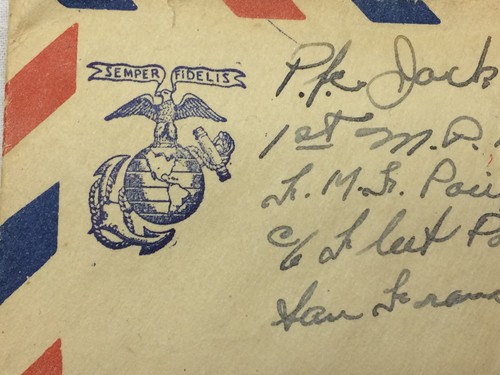 SEMPER FIDELIS
Pfc Jack
1st M.P.
F.M.F. Paci
c/o Fleet Po
San Franc